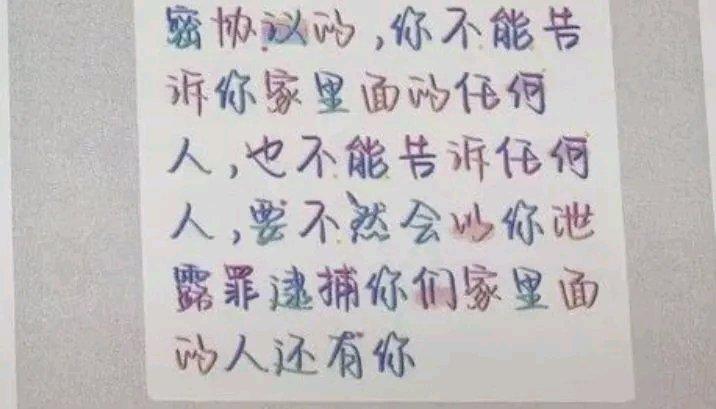 密协议的,你不能告
诉你家里面的任何
人,也不能告诉任何
人,要不然会以你泄
露罪逮捕你们家里面
的人还有你